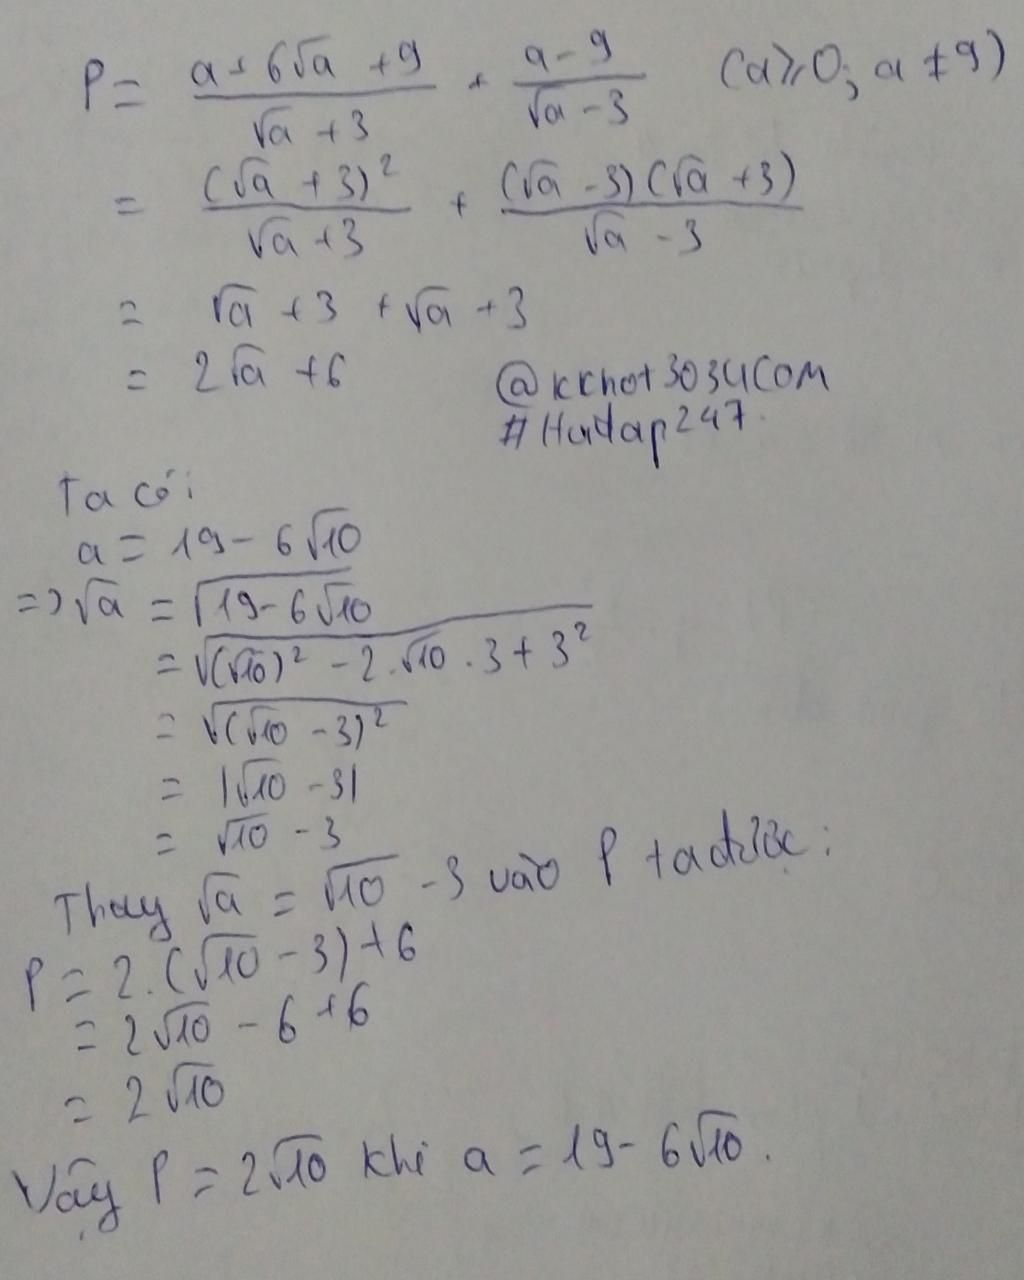 P = (a + 6√a + 9)/(√a + 3) + (a - 9)/(√a - 3) (a ⩾ 0; a ≠ 9)
= (√a + 3)²/(√a + 3) + (√a - 3)(√a + 3)/(√a - 3)
= √a + 3 + √a + 3
= 2√a + 6
#247
Ta có:
a = 19 - 6√10
=> √a = √(19 - 6√10)
= √((√10)² - 2.√10 . 3 + 3²)
= √((√10 - 3)²)
= |√10 - 3|
= √10 - 3
Thay √a = √10 - 3 vào P ta được:
P = 2.(√10 - 3) + 6
= 2√10 - 6 + 6
= 2√10
Vậy P = 2√10 khi a = 19 - 6√10.